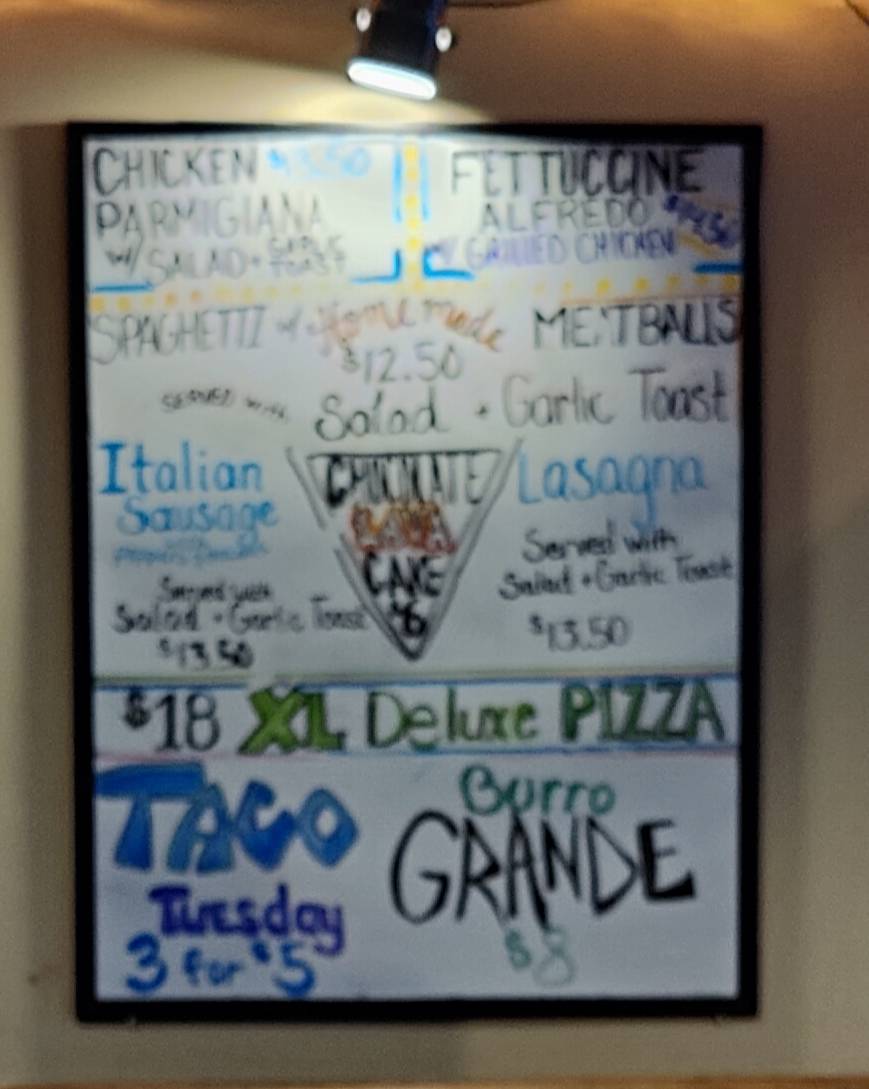 CHICKEN $13.50
PARMIGIANA
w/ SALAD + GARLIC TOAST
FETTUCCINE
ALFREDO
w/ GRILLED CHICKEN
SPAGHETTI w/ Homemade MEATBALLS
$12.50
SERVED with Salad + Garlic Toast
Italian
Sausage
Served with
Salad + Garlic Toast
$13.50
CHOCOLATE
LAVA
CAKE
$6
Lasagna
Served with
Salad + Garlic Toast
$13.50
$18 XL Deluxe PIZZA
TACO
Tuesday
3 for $5
Burro
GRANDE
$8